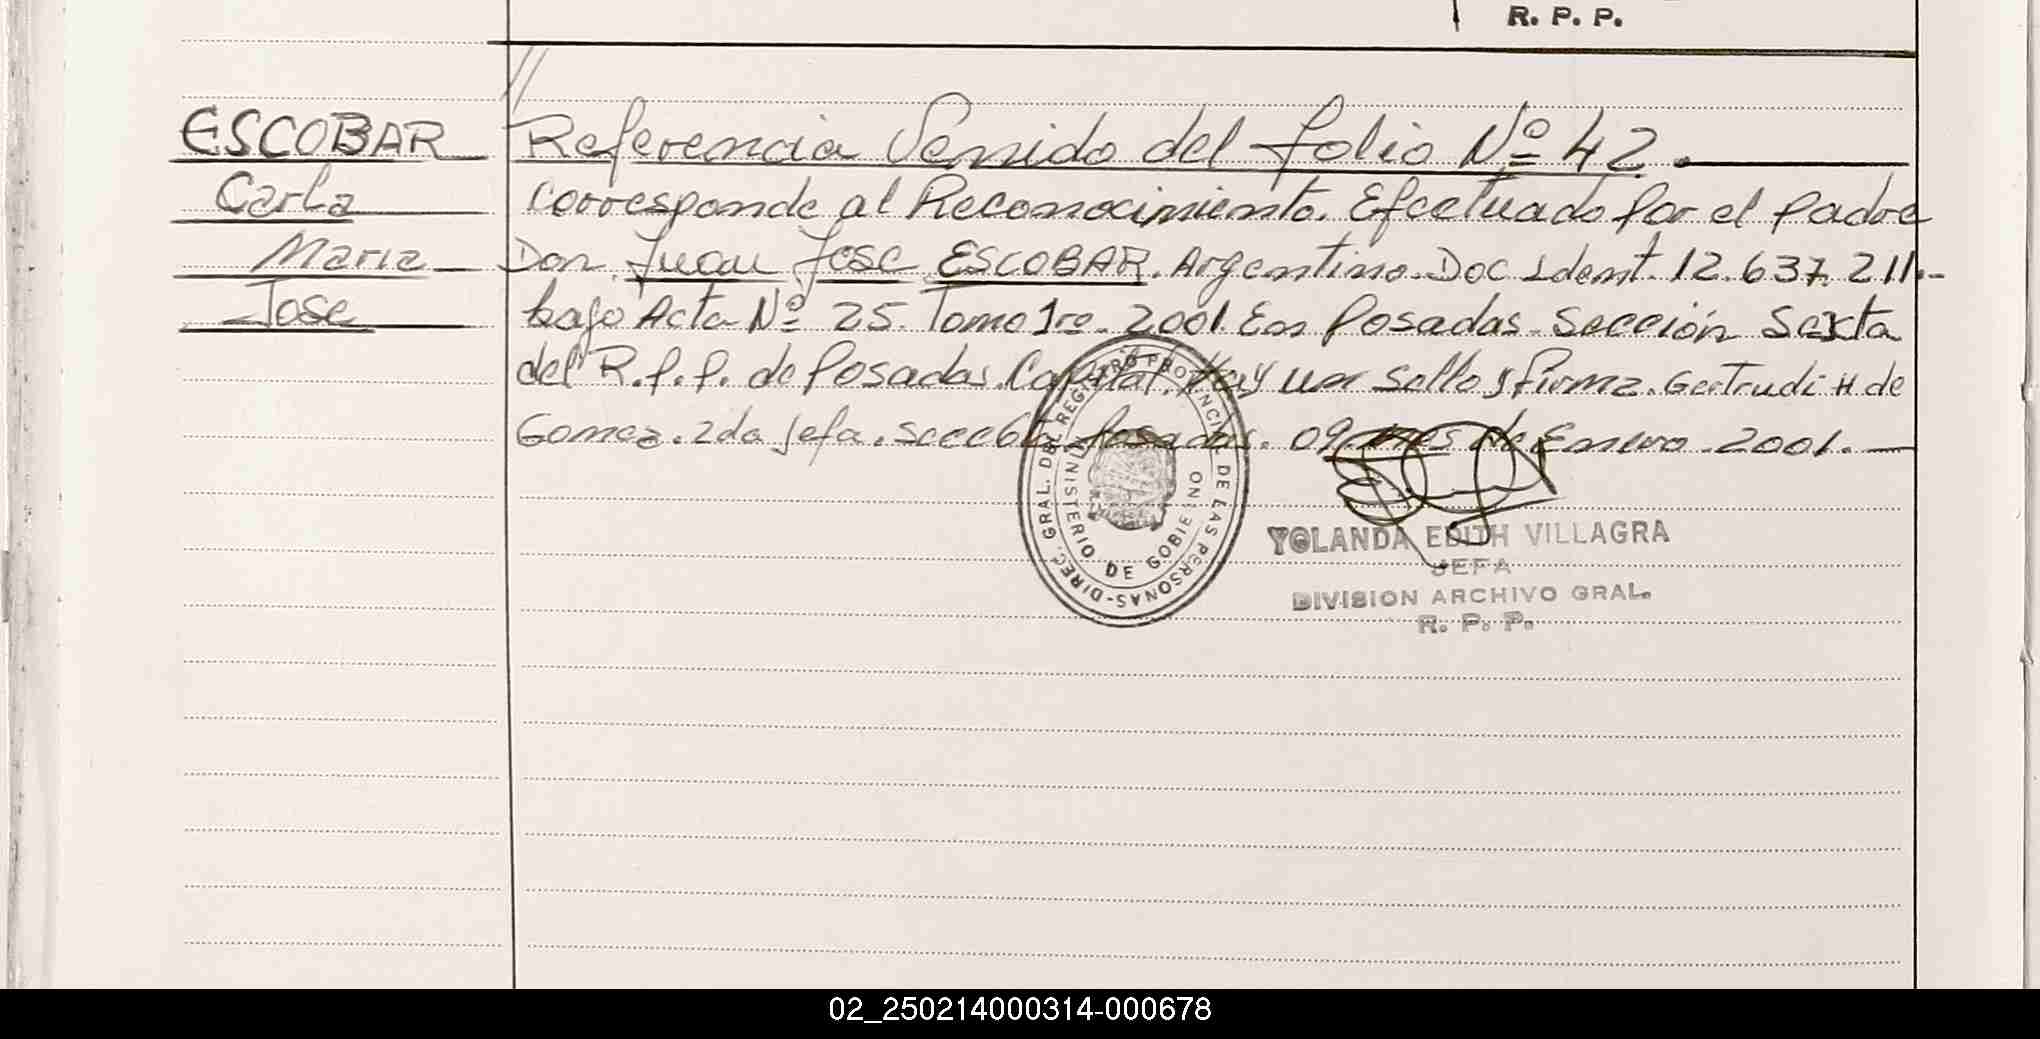 R. P. P.
//
ESCOBAR
Carla
Maria
Jose
Referencia Venido del folio Nº 42.
corresponde al Reconocimiento. Efectuado por el padre
Don Juan Jose ESCOBAR. Argentino. Doc Ident. 12.637.211.-
bajo Acta Nº 25. Tomo 1ro. 2001. En Posadas. Sección Sexta
del R.P.P. de Posadas. Capital. Hay un sello y firma. Gertrudi H de
Gomez. 2da Jefa. Posadas. 09 mes de Enero. 2001.
DIREC. GRAL. DEL REGISTRO PROVINCIAL DE LAS PERSONAS
MINISTERIO DE GOBIERNO
YOLANDA EDITH VILLAGRA
JEFA
DIVISION ARCHIVO GRAL.
R. P. P.
02_250214000314-000678